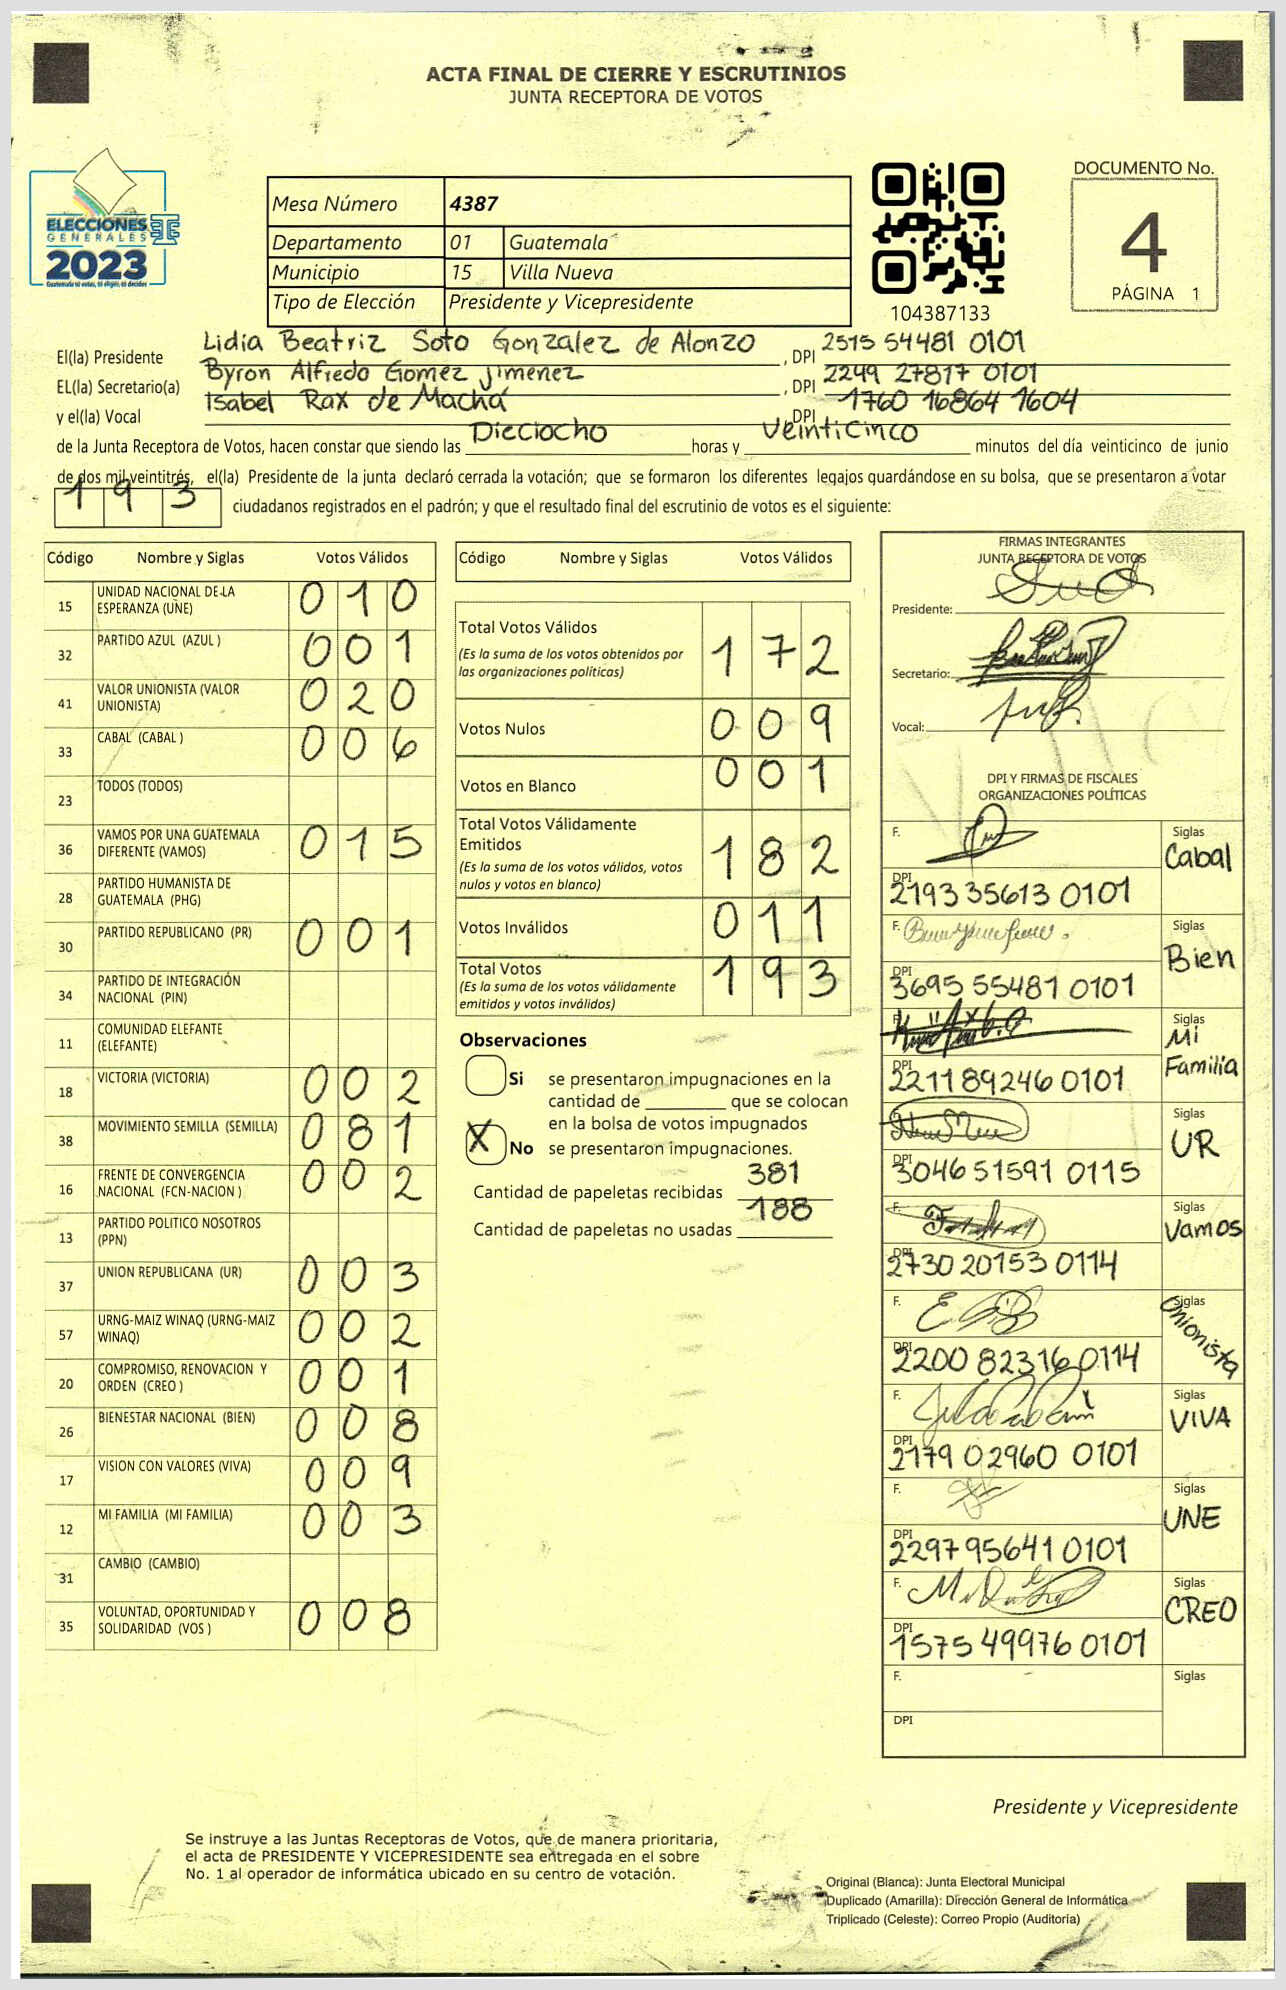 ACTA FINAL DE CIERRE Y ESCRUTINIOS
JUNTA RECEPTORA DE VOTOS
ELECCIONES
GENERALES
2023
Guatemala tú votas, tú eliges, tú decides
Mesa Número 4387
Departamento 01 Guatemala
Municipio 15 Villa Nueva
Tipo de Elección Presidente y Vicepresidente
104387133
DOCUMENTO No.
4
PÁGINA 1
El(la) Presidente Lidia Beatriz Soto Gonzalez de Alonzo , DPI 2515 54481 0101
EL(la) Secretario(a) Byron Alfredo Gomez Jimenez , DPI 2249 27817 0101
y el(la) Vocal Isabel Rax de Machá DPI 1760 16864 1604
de la Junta Receptora de Votos, hacen constar que siendo las Dieciocho horas y Veinticinco minutos del día veinticinco de junio
de dos mil veintitrés, el(la) Presidente de la junta declaró cerrada la votación; que se formaron los diferentes legajos guardándose en su bolsa, que se presentaron a votar
193 ciudadanos registrados en el padrón; y que el resultado final del escrutinio de votos es el siguiente:
Código Nombre y Siglas Votos Válidos
15 UNIDAD NACIONAL DE LA ESPERANZA (UNE) 010
32 PARTIDO AZUL (AZUL ) 001
41 VALOR UNIONISTA (VALOR UNIONISTA) 020
33 CABAL (CABAL ) 006
23 TODOS (TODOS)
36 VAMOS POR UNA GUATEMALA DIFERENTE (VAMOS) 015
28 PARTIDO HUMANISTA DE GUATEMALA (PHG)
30 PARTIDO REPUBLICANO (PR) 001
34 PARTIDO DE INTEGRACIÓN NACIONAL (PIN)
11 COMUNIDAD ELEFANTE (ELEFANTE)
18 VICTORIA (VICTORIA) 002
38 MOVIMIENTO SEMILLA (SEMILLA) 081
16 FRENTE DE CONVERGENCIA NACIONAL (FCN-NACION ) 002
13 PARTIDO POLITICO NOSOTROS (PPN)
37 UNION REPUBLICANA (UR) 003
57 URNG-MAIZ WINAQ (URNG-MAIZ WINAQ) 002
20 COMPROMISO, RENOVACION Y ORDEN (CREO ) 001
26 BIENESTAR NACIONAL (BIEN) 008
17 VISION CON VALORES (VIVA) 009
12 MI FAMILIA (MI FAMILIA) 003
31 CAMBIO (CAMBIO)
35 VOLUNTAD, OPORTUNIDAD Y SOLIDARIDAD (VOS ) 008
Código Nombre y Siglas Votos Válidos
Total Votos Válidos 172
(Es la suma de los votos obtenidos por
las organizaciones políticas)
Votos Nulos 009
Votos en Blanco 001
Total Votos Válidamente
Emitidos 182
(Es la suma de los votos válidos, votos
nulos y votos en blanco)
Votos Inválidos 011
Total Votos 193
(Es la suma de los votos válidamente
emitidos y votos inválidos)
Observaciones
Si se presentaron impugnaciones en la
cantidad de ________ que se colocan
en la bolsa de votos impugnados
X No se presentaron impugnaciones.
Cantidad de papeletas recibidas 381
Cantidad de papeletas no usadas 188
FIRMAS INTEGRANTES
JUNTA RECEPTORA DE VOTOS
Presidente:
Secretario:
Vocal:
DPI Y FIRMAS DE FISCALES
ORGANIZACIONES POLÍTICAS
F. Siglas Cabal
DPI 2193 35613 0101
F. Siglas Bien
DPI 3695 55481 0101
F. Siglas Mi Familia
DPI 2211 89246 0101
F. Siglas UR
DPI 3046 51591 0115
F. Siglas Vamos
DPI 2730 20153 0114
F. Siglas Unionista
DPI 2200 82316 0114
F. Siglas VIVA
DPI 2179 02960 0101
F. Siglas UNE
DPI 2297 95641 0101
F. Siglas CREO
DPI 1575 49976 0101
F. Siglas
DPI
Presidente y Vicepresidente
Se instruye a las Juntas Receptoras de Votos, que de manera prioritaria,
el acta de PRESIDENTE Y VICEPRESIDENTE sea entregada en el sobre
No. 1 al operador de informática ubicado en su centro de votación.
Original (Blanca): Junta Electoral Municipal
Duplicado (Amarilla): Dirección General de Informática
Triplicado (Celeste): Correo Propio (Auditoría)